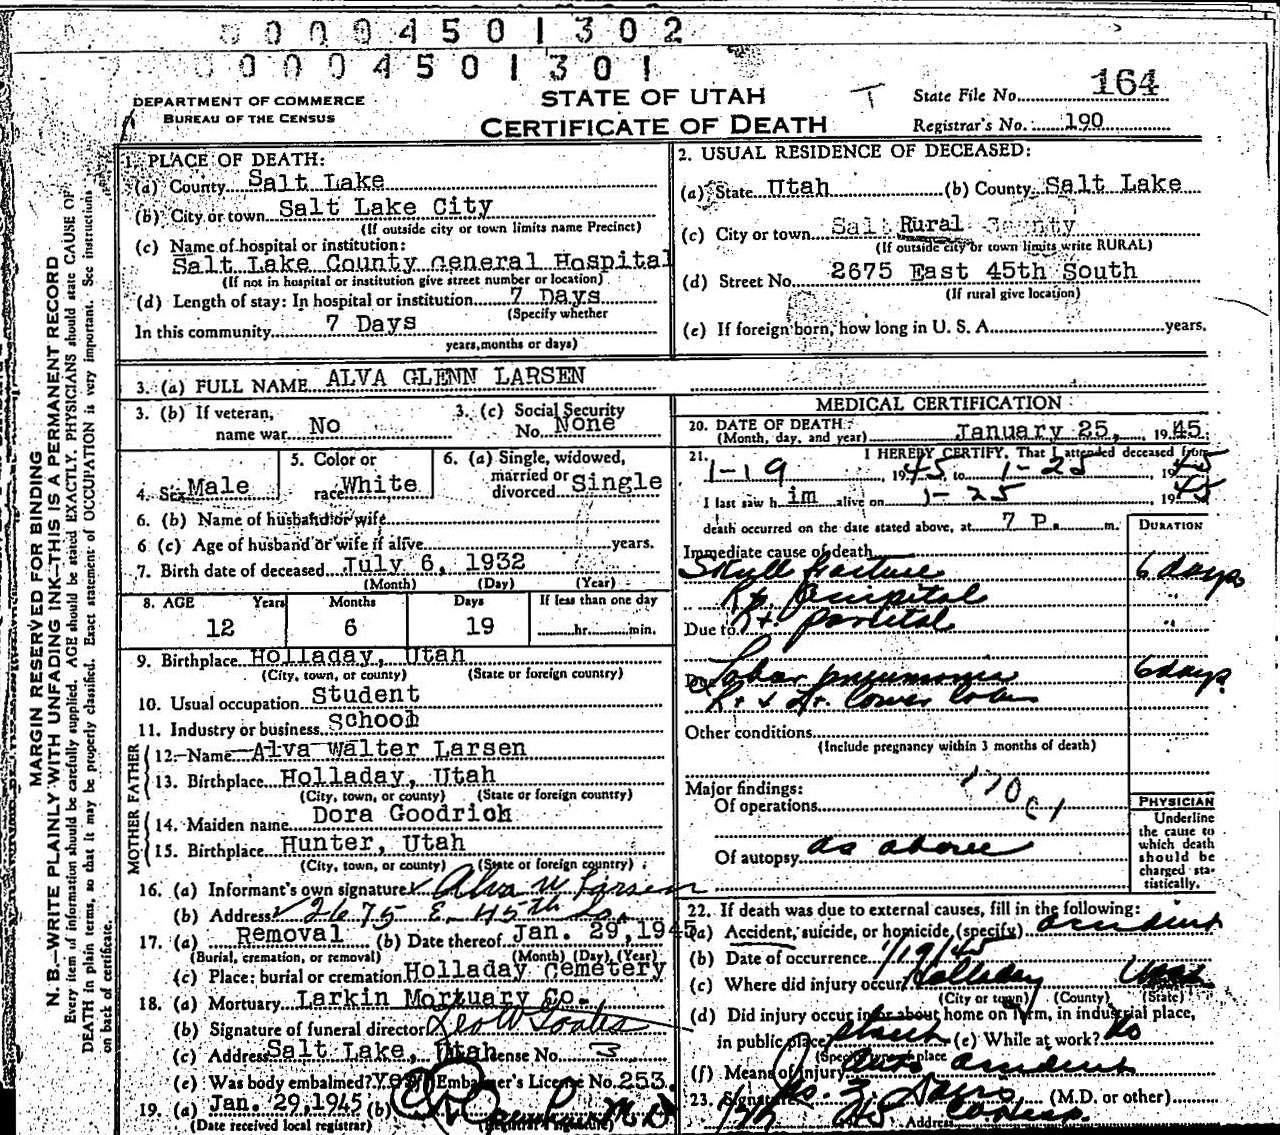 00004501302
0004501301
DEPARTMENT OF COMMERCE
BUREAU OF THE CENSUS
STATE OF UTAH
CERTIFICATE OF DEATH
T
State File No. 164
Registrar's No. 190
MARGIN RESERVED FOR BINDING
N. B.—WRITE PLAINLY WITH UNFADING INK—THIS IS A PERMANENT RECORD
Every item of information should be carefully supplied. AGE should be stated EXACTLY. PHYSICIANS should state CAUSE OF
DEATH in plain terms, so that it may be properly classified. Exact statement of OCCUPATION is very important. See instructions
on back of certificate.
1. PLACE OF DEATH:
(a) County Salt Lake
(b) City or town Salt Lake City
(If outside city or town limits name Precinct)
(c) Name of hospital or institution:
Salt Lake County General Hospital
(If not in hospital or institution give street number or location)
(d) Length of stay: In hospital or institution 7 Days
(Specify whether
In this community 7 Days
years, months or days)
2. USUAL RESIDENCE OF DECEASED:
(a) State Utah (b) County Salt Lake
(c) City or town Salt Rural County
(If outside city or town limits write RURAL)
(d) Street No. 2675 East 45th South
(If rural give location)
(e) If foreign born, how long in U. S. A. years.
3. (a) FULL NAME ALVA GLENN LARSEN
3. (b) If veteran, name war No
3. (c) Social Security No. None
4. Sex Male
5. Color or race White
6. (a) Single, widowed, married or divorced Single
6. (b) Name of husband or wife
6 (c) Age of husband or wife if alive years.
7. Birth date of deceased July 6, 1932
(Month) (Day) (Year)
8. AGE Years Months Days If less than one day
12 6 19 hr. min.
9. Birthplace Holladay, Utah
(City, town, or county) (State or foreign country)
10. Usual occupation Student
11. Industry or business School
FATHER
12. Name Alva Walter Larsen
13. Birthplace Holladay, Utah
(City, town, or county) (State or foreign country)
MOTHER
14. Maiden name Dora Goodrich
15. Birthplace Hunter, Utah
(City, town, or county) (State or foreign country)
16. (a) Informant's own signature Alva W Larsen
(b) Address 2675 E. 45th So.
17. (a) Removal (b) Date thereof Jan. 29, 1945
(Burial, cremation, or removal) (Month) (Day) (Year)
(c) Place: burial or cremation Holladay Cemetery
18. (a) Mortuary Larkin Mortuary Co.
(b) Signature of funeral director
(c) Address Salt Lake, Utah License No. 3
(e) Was body embalmed? Yes Embalmer's License No. 253
19. (a) Jan. 29, 1945 (b) M D
(Date received local registrar)
MEDICAL CERTIFICATION
20. DATE OF DEATH:
(Month, day, and year) January 25, 1945
21. I HEREBY CERTIFY, That I attended deceased from
1-19 1945, to 1-25 1945
I last saw him alive on 1-25 1945
death occurred on the date stated above, at 7 P. m.
DURATION
Immediate cause of death
Skull fracture 6 days
Rt. occipital "
Due to Rt. parietal "
Due Lobar pneumonia 6 days
Rt & Lt. lower lobes
Other conditions
(Include pregnancy within 3 months of death)
Major findings:
Of operations
170c1
Of autopsy as above
PHYSICIAN
Underline
the cause to
which death
should be
charged sta-
tistically.
22. If death was due to external causes, fill in the following:
(a) Accident, suicide, or homicide (specify) accident
(b) Date of occurrence 1/19/45
(c) Where did injury occur? Holladay Utah
(City or town) (County) (State)
(d) Did injury occur in or about home on farm, in industrial place,
in public place street (e) While at work? No
(Specify type of place)
(f) Means of injury Auto accident
23. Signature (M.D. or other)
Address